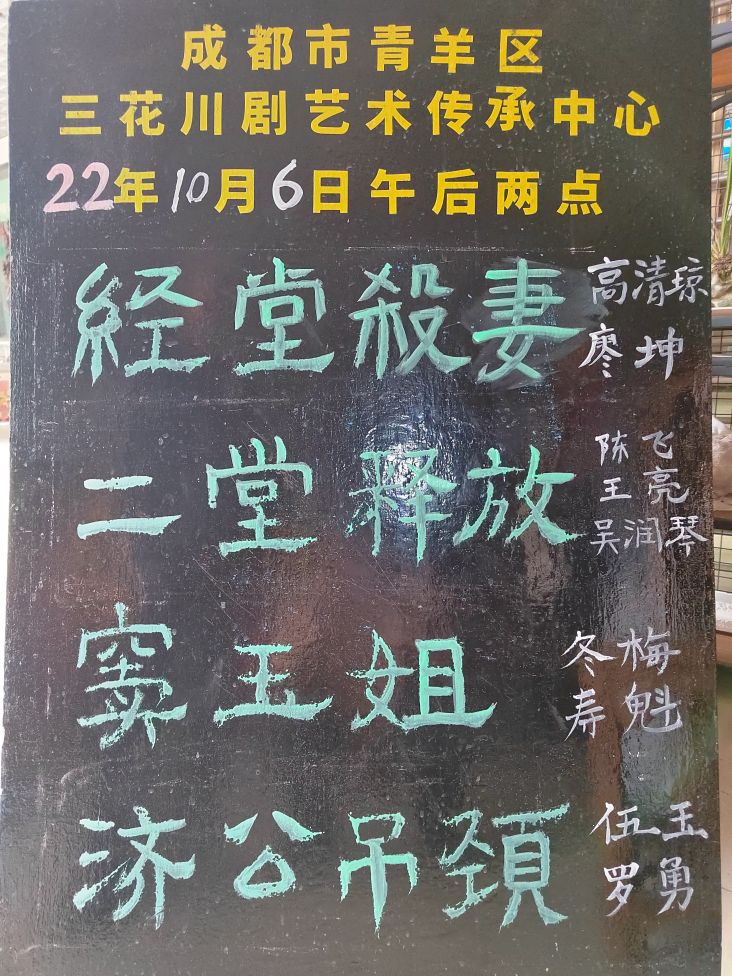 成都市青羊区
三花川剧艺术传承中心
22年10月6日午后两点
経堂殺妻
高清琼
廖坤
二堂释放
陈飞
王亮
吴润琴
窦玉姐
冬梅
寿魁
济公吊頸
伍玉
罗勇